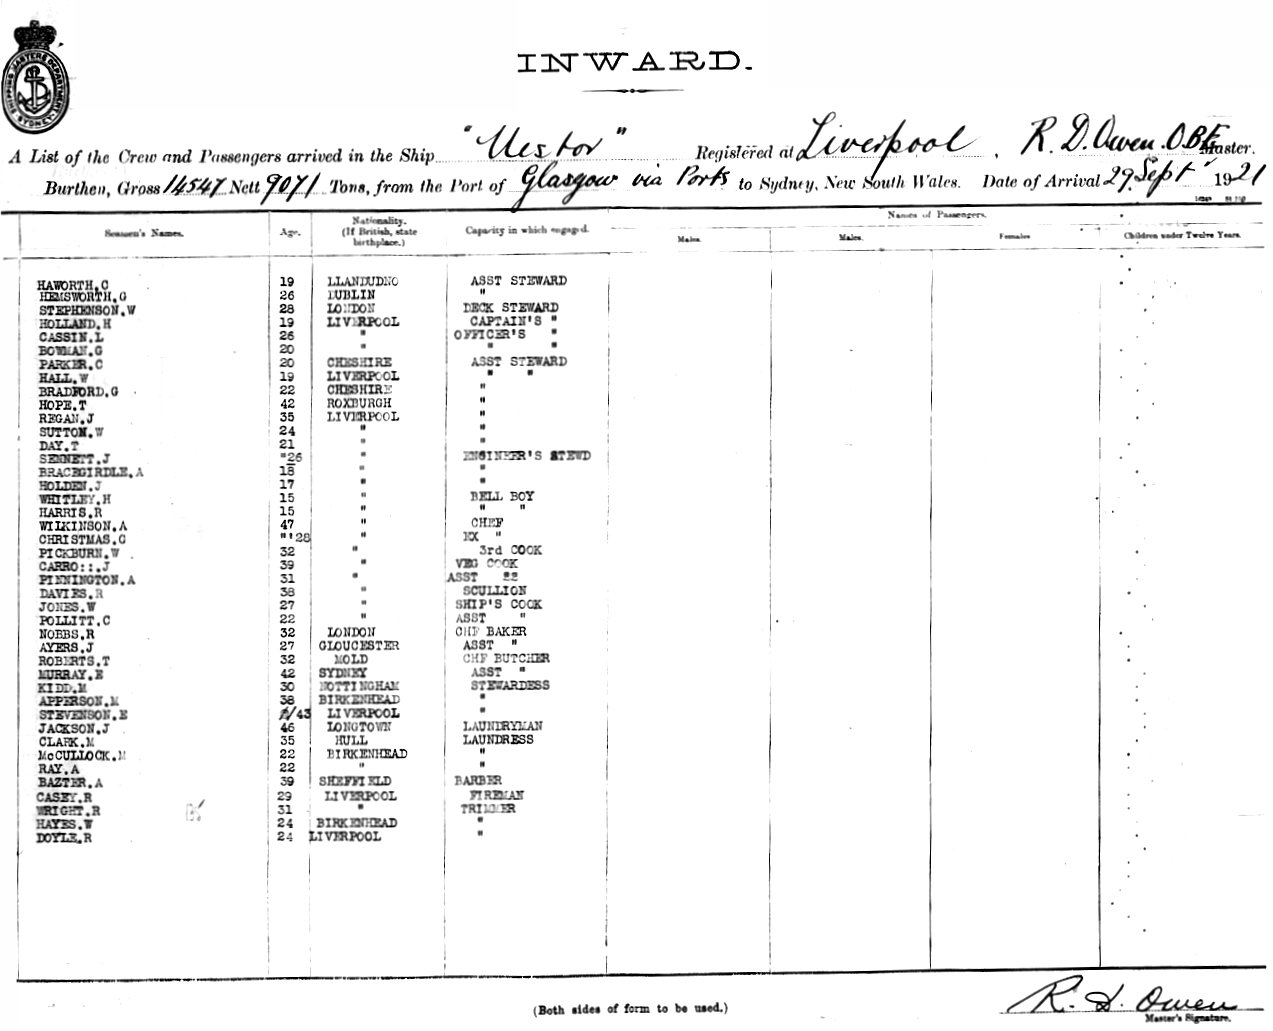 SHIPPING MASTERS DEPARTMENT SYDNEY
INWARD.
A List of the Crew and Passengers arrived in the Ship "Nestor" Registered at Liverpool, R. D. Owen. O.B.E. Master.
Burthen, Gross 14547 Nett 9071 Tons, from the Port of Glasgow via Ports to Sydney, New South Wales. Date of Arrival 29 Sept 1921
Names of Passengers.
Seamen's Names. Age. Nationality. (If British, state birthplace.) Capacity in which engaged. Males. Males. Females Children under Twelve Years.
HAWORTH.C 19 LLANDUDNO ASST STEWARD
HEMSWORTH.G 26 DUBLIN "
STEPHENSON.W 28 LONDON DECK STEWARD
HOLLAND.H 19 LIVERPOOL CAPTAIN'S "
CASSIN.L 26 " OFFICER'S "
BOWMAN.G 20 " " "
PARKER.C 20 CHESHIRE ASST STEWARD
HALL.W 19 LIVERPOOL " "
BRADFORD.G 22 CHESHIRE "
HOPE.T 42 ROXBURGH "
REGAN.J 35 LIVERPOOL "
SUTTON.W 24 " "
DAY.T 21 " "
SENNETT.J "26 " ENGINEER'S STEWD
BRACEGIRDLE.A 18 " "
HOLDEN.J 17 " "
WHITLEY.H 15 " BELL BOY
HARRIS.R 15 " " "
WILKINSON.A 47 " CHEF
CHRISTMAS.G "'28 " EX "
PICKBURN.W 32 " 3rd COOK
CARRO::.J 39 " VEG COOK
PINNINGTON.A 31 " ASST 22
DAVIES.R 38 " SCULLION
JONES.W 27 " SHIP'S COOK
POLLITT.C 22 " ASST "
NOBBS.R 32 LONDON CHF BAKER
AYERS.J 27 GLOUCESTER ASST "
ROBERTS.T 32 MOLD CHF BUTCHER
MURRAY.E 42 SYDNEY ASST "
KIDD.M 30 NOTTINGHAM STEWARDESS
APPERSON.M 38 BIRKENHEAD "
STEVENSON.E /43 LIVERPOOL "
JACKSON.J 46 LONGTOWN LAUNDRYMAN
CLARK.M 35 HULL LAUNDRESS
McCULLOCK.M 22 BIRKENHEAD "
RAY.A 22 " "
BAZTER.A 39 SHEFFIELD BARBER
CASEY.R 29 LIVERPOOL FIREMAN
WRIGHT.R 31 " TRIMMER
HAYES.W 24 BIRKENHEAD "
DOYLE.R 24 LIVERPOOL "
(Both sides of form to be used.)
R. D. Owen
Master's Signature.